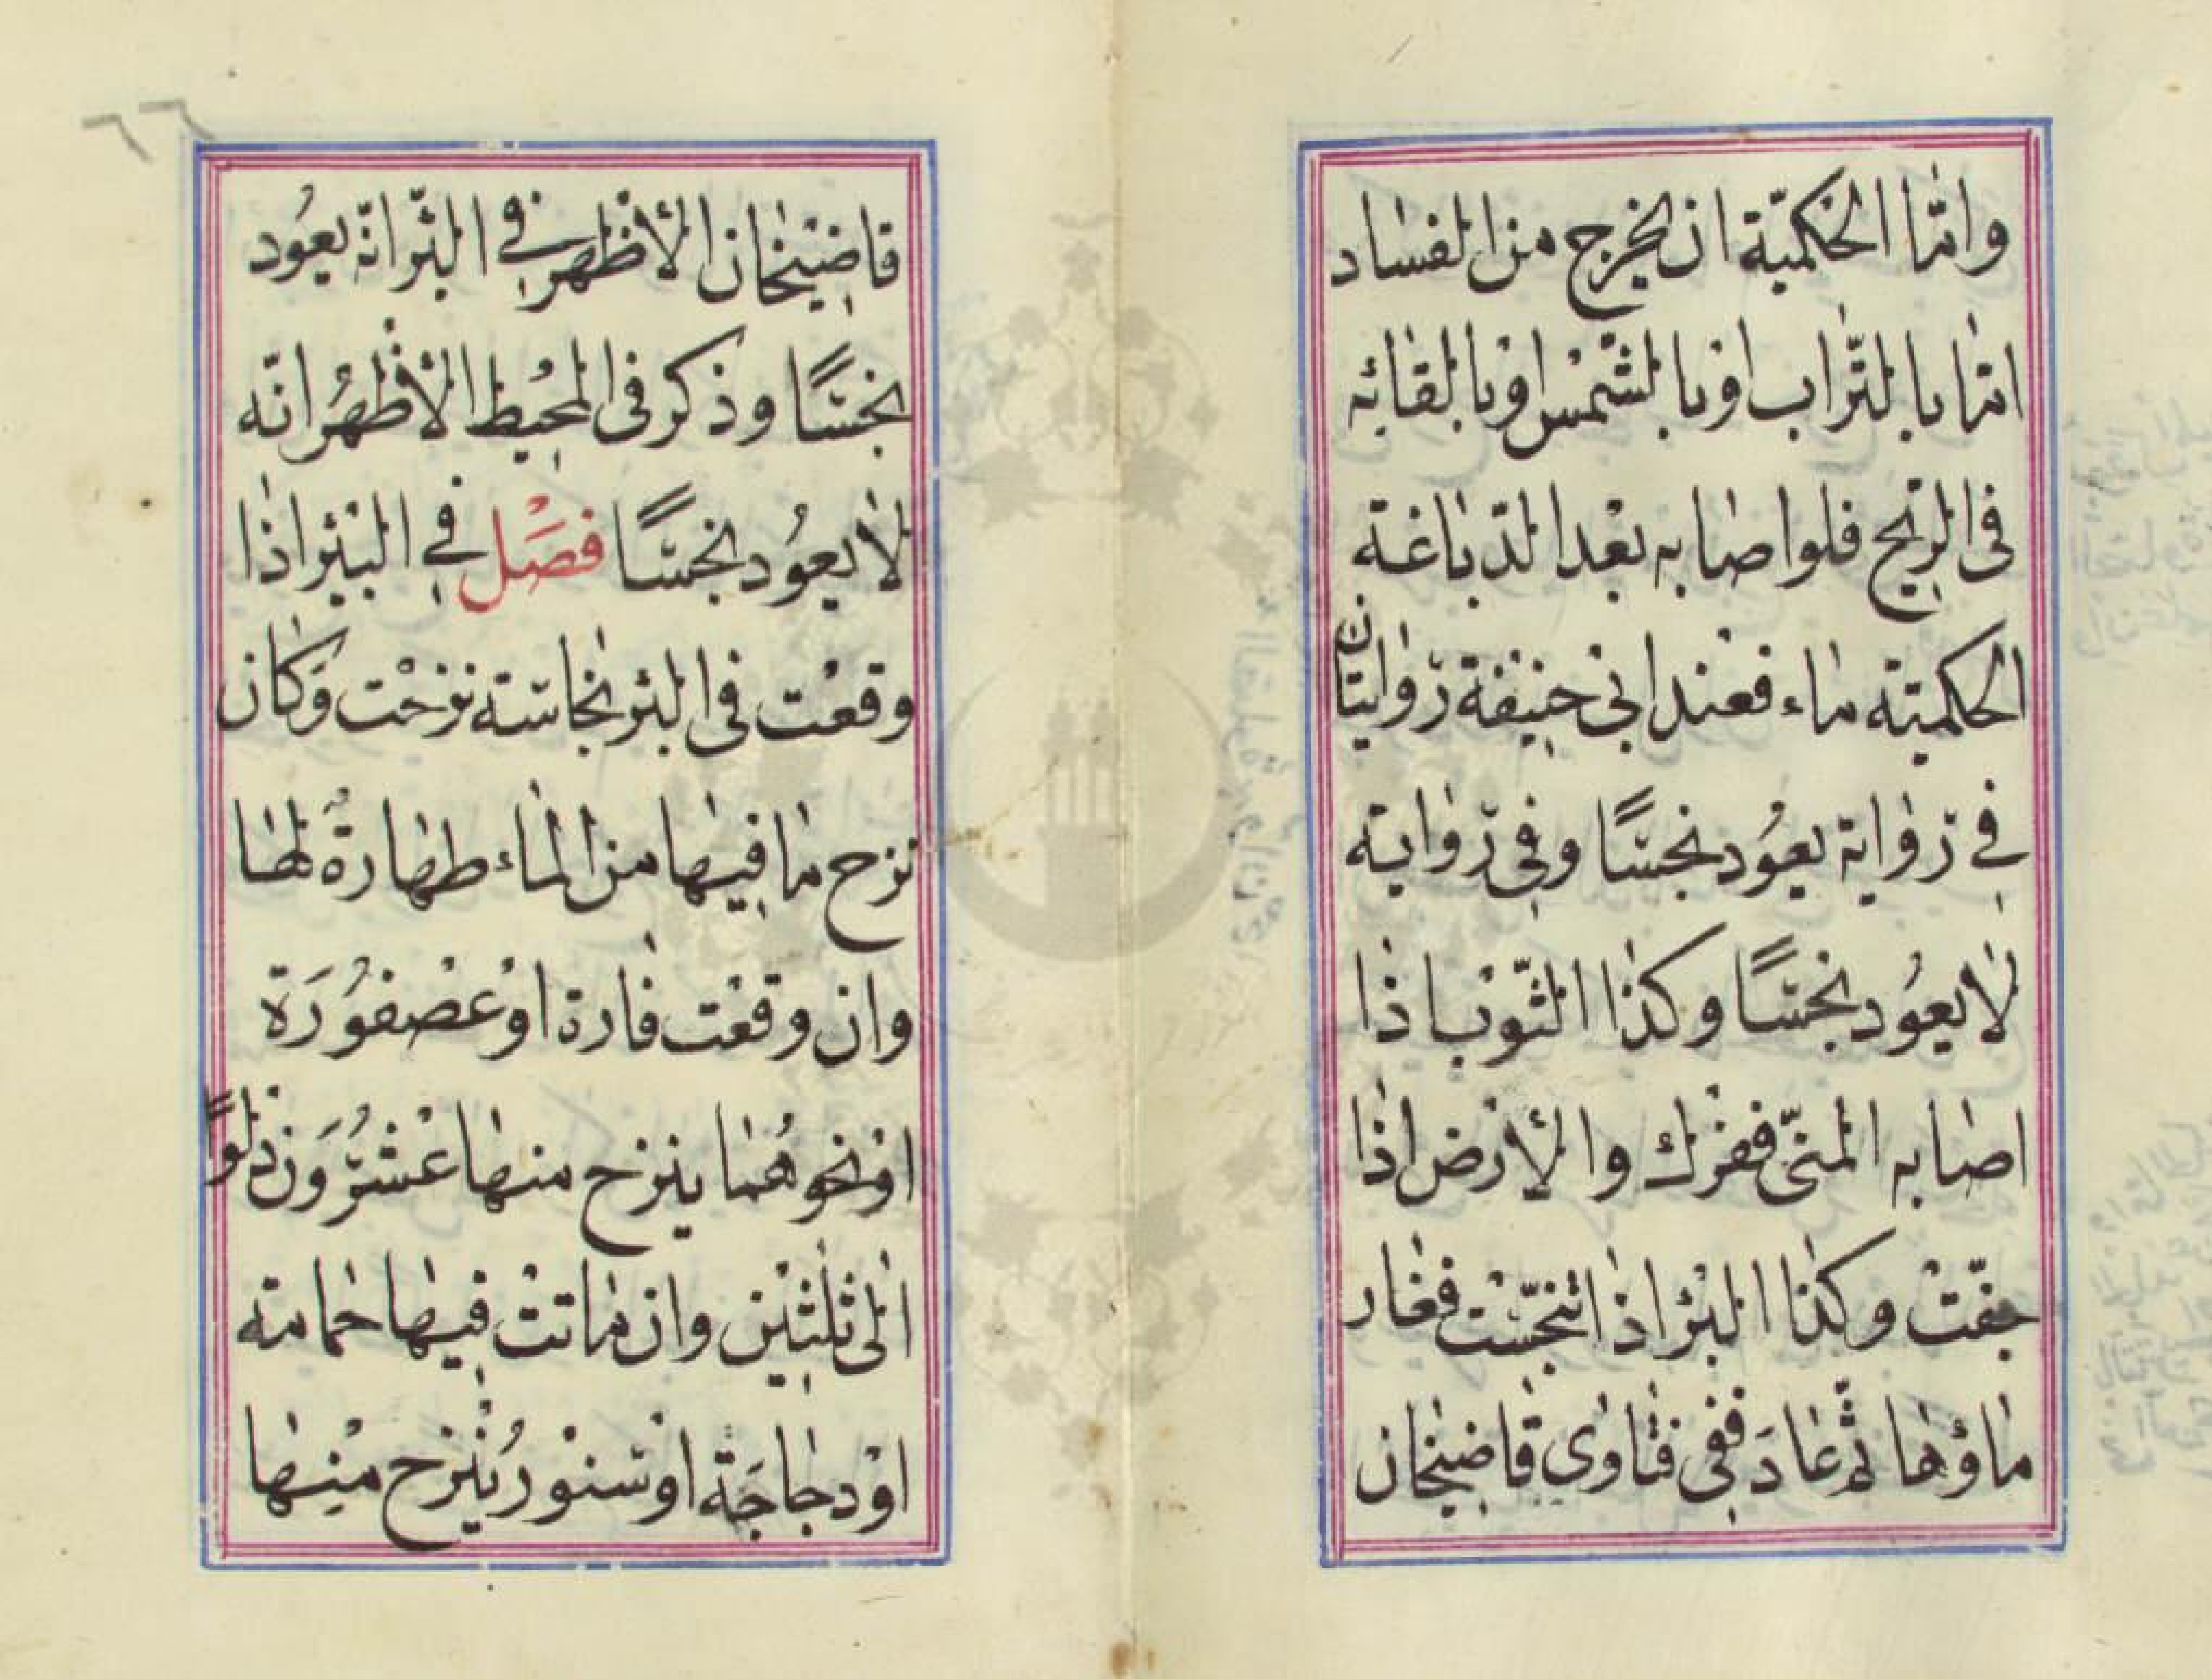 وامّا الحكميّة ان يخرج من الفساد
امّا بالتّراب او بالشّمس او بالقائه
فى الرّيح فلو اصابه بعد الدّباغة
الحكميّة ماء فعند ابى حنيفة روايتان
فى رواية يعود نجسًا وفى رواية
لا يعود نجسًا وكذا الثّوب اذا
اصابه المنىّ ففرك والأرض اذا
جفّت وكذا البئر اذا تنجّست فغار
ماؤها ثمّ عادَ ففى فتاوى قاضيخان
قاضيخان الأظهر فى البئر انّه يعُود
نجسًا وذكر فى المحُيط الأظهرُ انّه
لا يعُود نجسًا فصَل فى البئر اذا
وقعْت فى البئر نجاسة نزحْت وَكان
نزح ما فيها من الماء طهارةً لها
وان وقعْت فارة اوْ عصْفوُرَة
اوْ نحوهُما ينزح منها عشْرُوَن دلوًا
الى ثلثيْن وان ماتتْ فيها حمامة
اوْ دجاجَة اوْ سنوْر يُنْزح منْها
٦٦